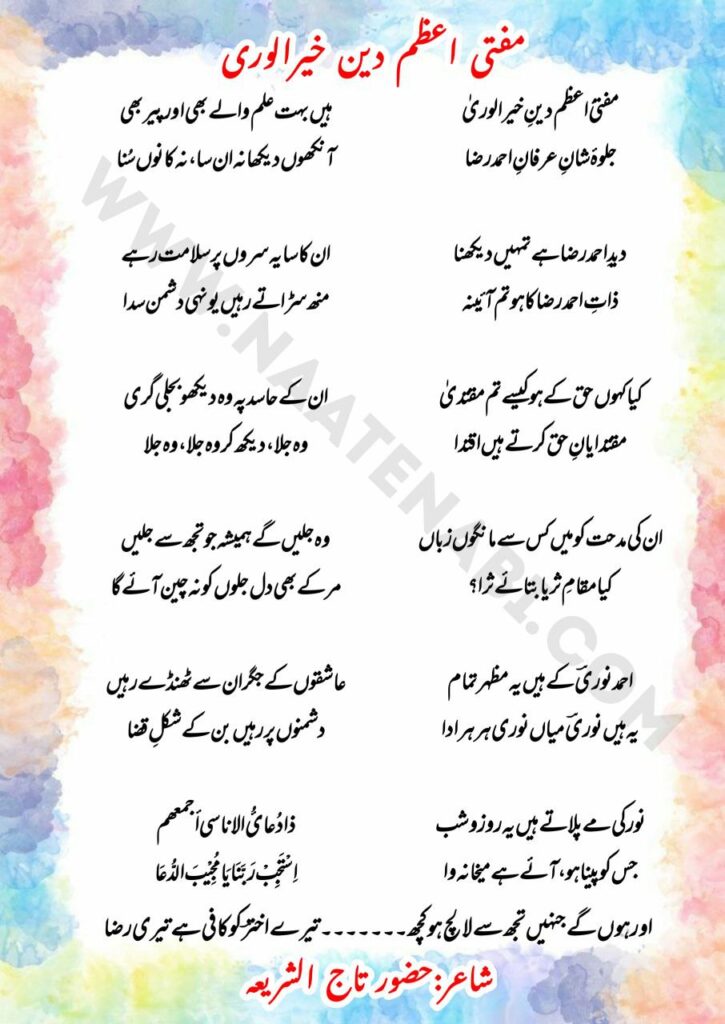 مفتی اعظم دین خیرالوری
مفتی اعظم دینِ خیر الوریٰ
جلوۂ شانِ عرفانِ احمد رضا
دید احمد رضا ہے تمہیں دیکھنا
ذاتِ احمد رضا کا ہو تم آئینہ
کیا کہوں حق کے ہو کیسے تم مقتدیٰ
مقتدایانِ حق کرتے ہیں اقتدا
ان کی مدحت کو میں کس سے مانگوں زباں
کیا مقامِ ثریا بتائے ثرا؟
احمد نوریؔ کے ہیں یہ مظہر تمام
یہ ہیں نوریؔ میاں نوری ہر ہر ادا
نور کی مے پلاتے ہیں یہ روز و شب
جس کو پینا ہو، آئے ہے میخانہ وا
ہیں بہت علم والے بھی اور پیر بھی
آنکھوں دیکھا نہ ان سا، نہ کانوں سُنا
ان کا سایہ سروں پر سلامت رہے
منھ سڑاتے رہیں یونہی دشمن سدا
ان کے حاسد پہ وہ دیکھو بجلی گری
وہ جلا، دیکھ کر وہ جلا، وہ جلا
وہ جلیں گے ہمیشہ جو تجھ سے جلیں
مر کے بھی دل جلوں کو نہ چین آئے گا
عاشقوں کے جگر ان سے ٹھنڈے رہیں
دشمنوں پر رہیں بن کے شکلِ قضا
ذا دُعائیُ الاناسی أجمعھم
اِسْتَجِبْ رَبَّنَا یَا مُجِیْبَ الدُّعَا
اور ہوں گے جنہیں تجھ سے لالچ ہو کچھ۔۔۔۔۔۔۔ تیرے اخترؔ کو کافی ہے تیری رضا
شاعر:حضور تاج الشریعہ
WWW.NAATENABI.COM